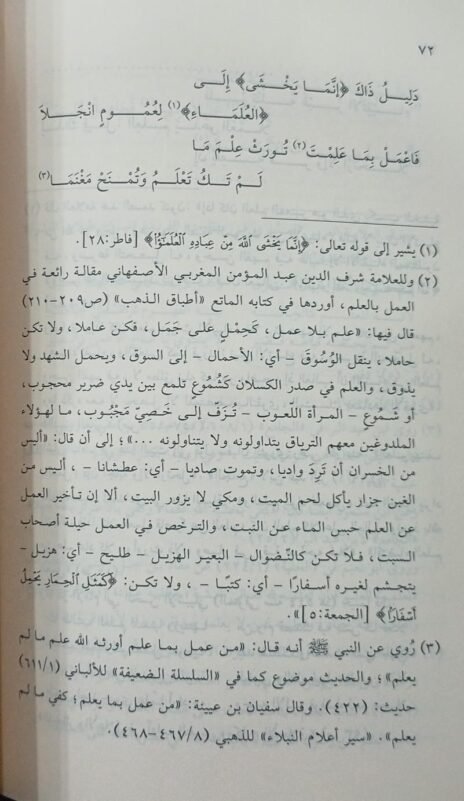 ٧٢
دَلِيلُ ذَاكَ ﴿إِنَّمَا يَخْشَى﴾ إِلَى
﴿العُلَمَاءِ﴾(١) لِعُمُومٍ انْجَلَا
فَاعْمَلْ بِمَا عَلِمْتَ(٢) تُورَثْ عِلْمَ مَا
لَمْ تَكُ تَعْلَمُ وَتُمْنَحْ مَغْنَمَا(٣)
(١) يشير إلى قوله تعالى: ﴿إِنَّمَا يَخْشَى اللَّهَ مِنْ عِبَادِهِ الْعُلَمَٰٓؤُا۟﴾ [فاطر: ٢٨].
(٢) وللعلامة شرف الدين عبد المؤمن المغربي الأصفهاني مقالة رائعة في
العمل بالعلم، أوردها في كتابه الماتع «أطباق الذهب» (ص٢٠٩-٢١٠)
قال فيها: «علم بلا عمل، كَحِمْلٍ على جَمَل، فكن عاملا، ولا تكن
حاملا، ينقل الوُسُوقَ - أي: الأحمال - إلى السوق، ويحمل الشهد ولا
يذوق، والعلم في صدر الكسلان كَشُمُوعٍ تلمع بين يدي ضرير محجوب،
أو شَمُوع - المرأة اللّعوب - تُزَفّ إلى خَصِيّ مَجْبُوب، ما لهؤلاء
الملدوغين معهم الترياق يتداولونه ولا يتناولونه ...»؛ إلى أن قال: «أليس
من الخسران أن تَرِدَ واديا، وتموت صاديا - أي: عطشانا -، أليس من
الغبن جزار يأكل لحم الميت، ومكي لا يزور البيت، ألا إن تأخير العمل
عن العلم حبس الماء عن النبت، والترخص في العمل حيلة أصحاب
السبت، فلا تكن كالنِّضْوال - البعير الهزيل - طليح - أي: هزيل -
يتجشم لغيره أسفارًا - أي: كتبًا -، ولا تكن: ﴿كَمَثَلِ الْحِمَارِ يَحْمِلُ
أَسْفَارًا﴾ [الجمعة: ٥]».
(٣) رُوي عن النبي ﷺ أنه قال: «من عمل بما علم أورثه الله علم ما لم
يعلم»؛ والحديث موضوع كما في «السلسلة الضعيفة» للألباني (١/ ٦١١)
حديث: (٤٢٢). وقال سفيان بن عيينة: «من عمل بما يعلم؛ كفي ما لم
يعلم». «سير أعلام النبلاء» للذهبي (٨/ ٤٦٧-٤٦٨).